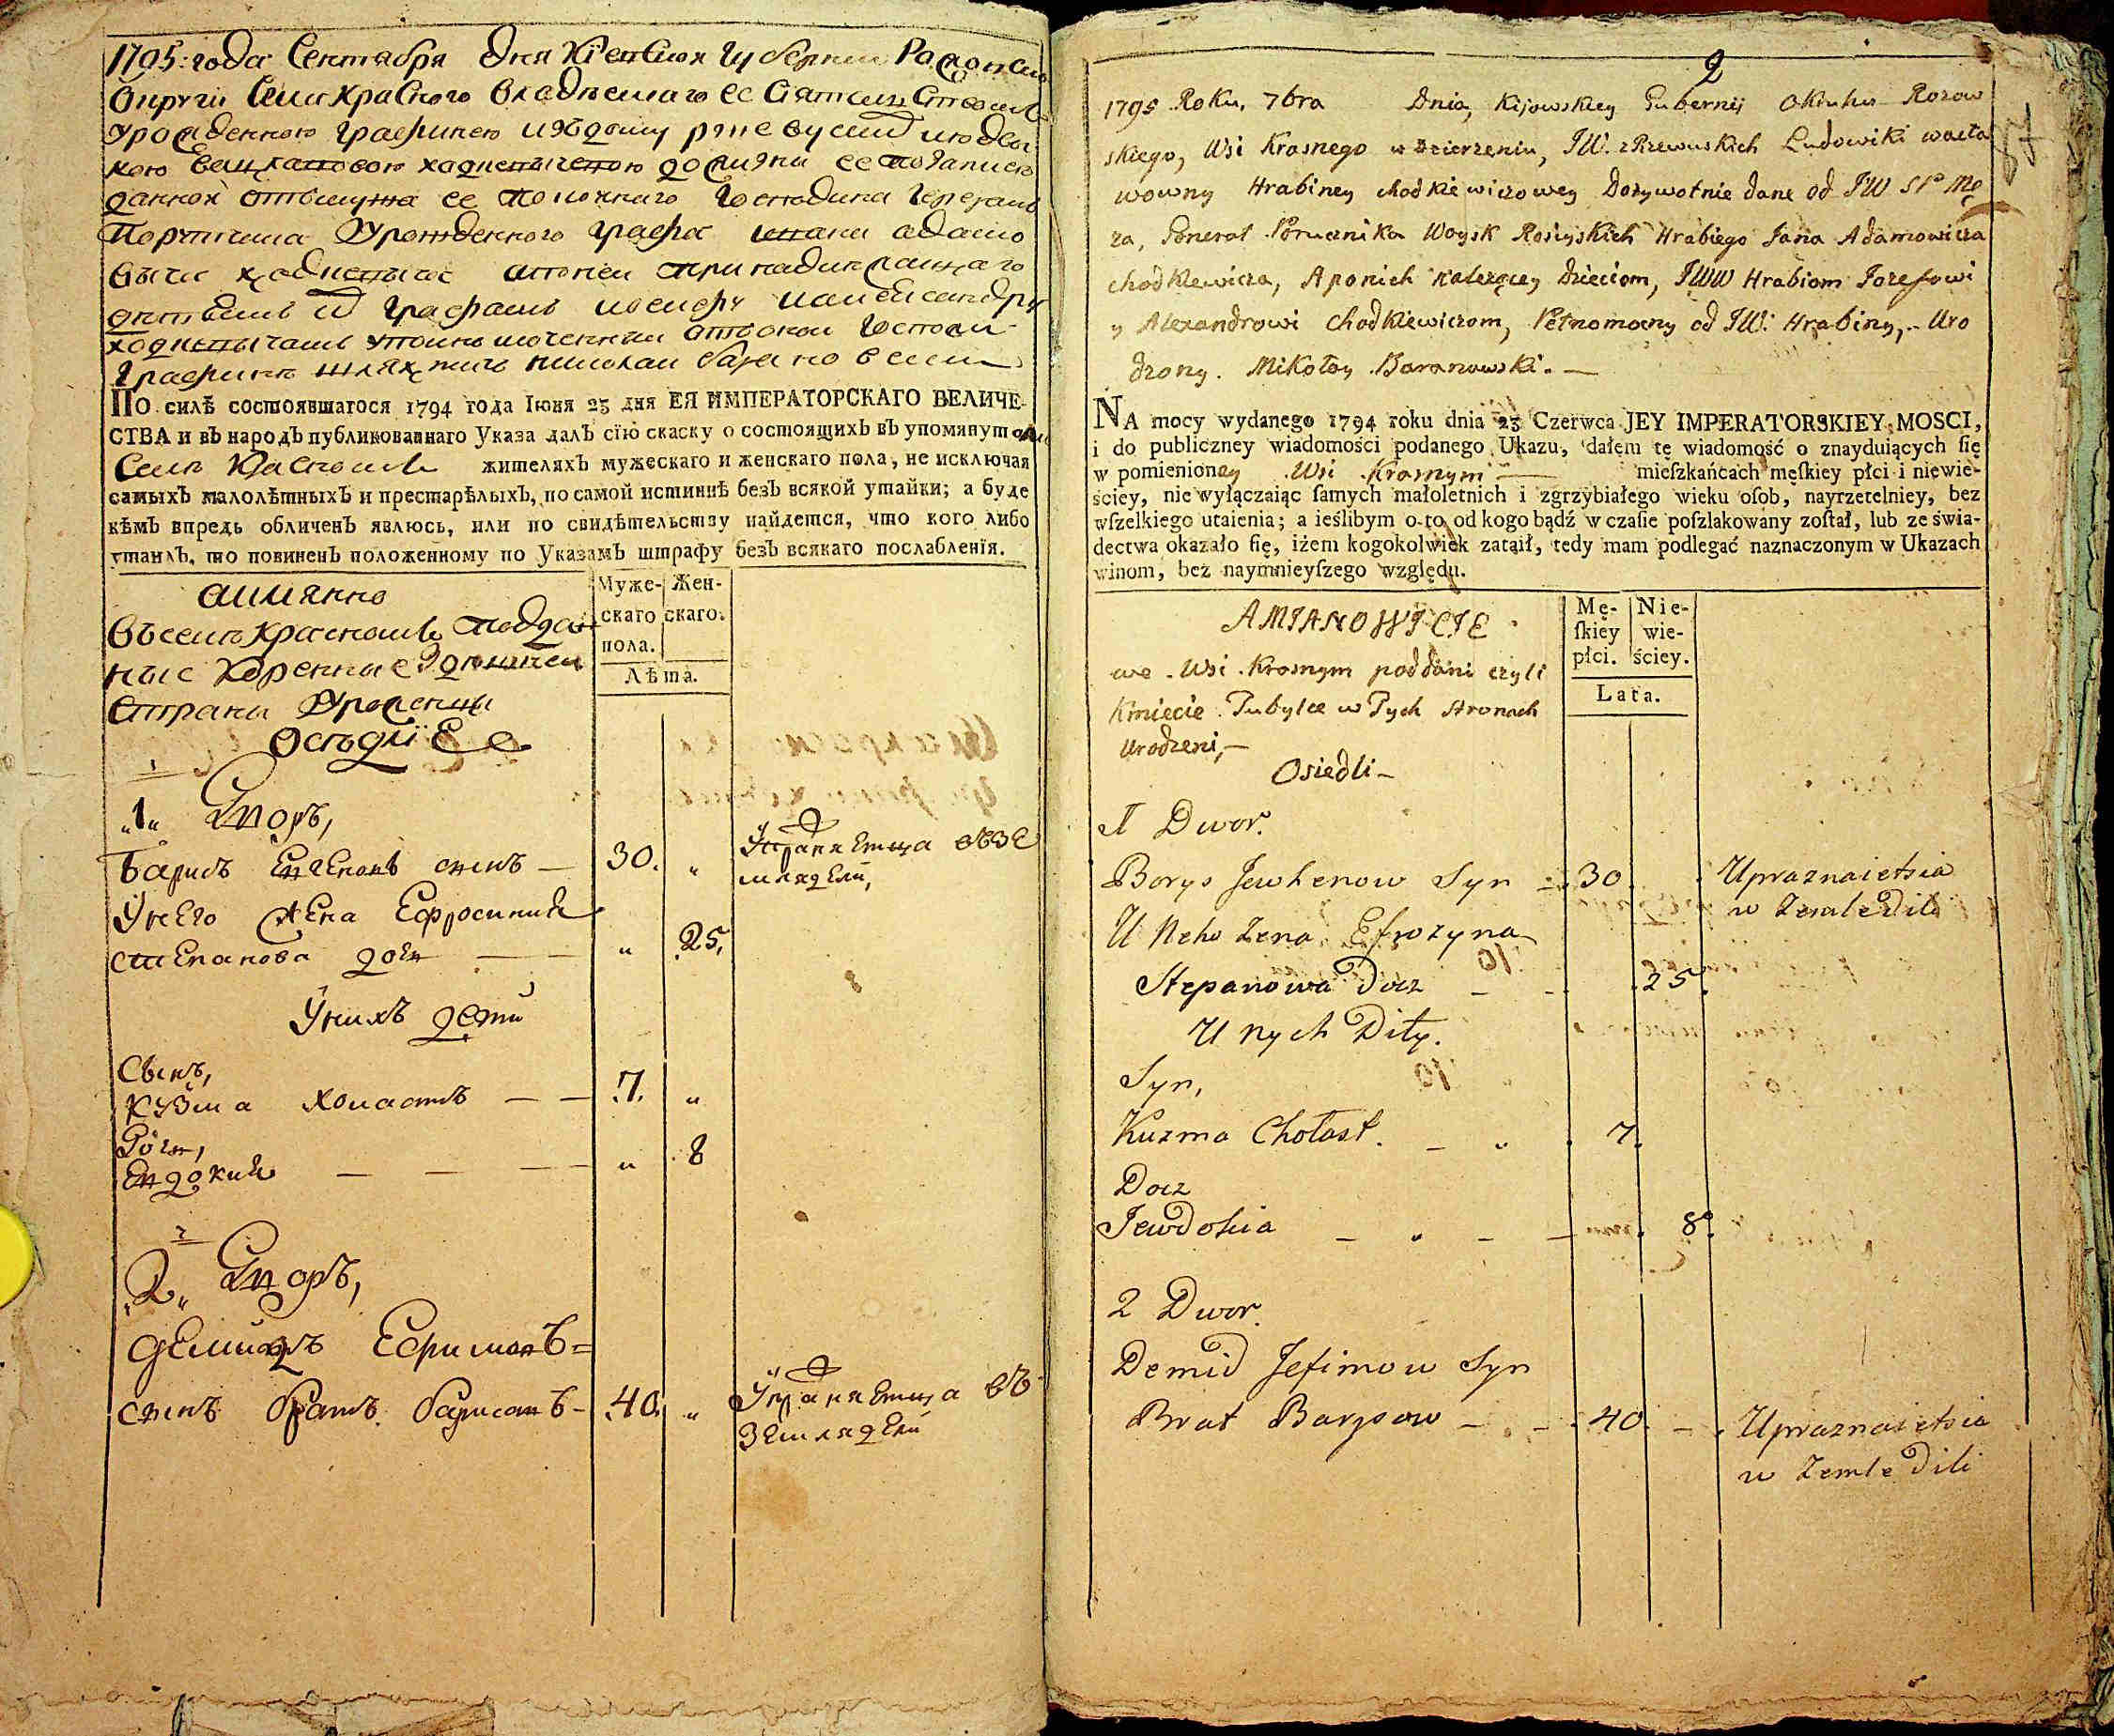 1795: года Сентября дня Кіевской Губерніи
Округи Села Красного
данной
Графа
Графамъ
ПО силѣ состоявшагося 1794 года Іюня 23 дня ЕЯ ИМПЕРАТОРСКАГО ВЕЛИЧЕ-
СТВА и вЪ народЪ публикованнаго Указа далЪ сїю скаску о состоящихЪ вЪ упомянутомъ
Селѣ Красномъ жителяхЪ мужескаго и женскаго пола, не исключая
самыхЪ малолѣтныхЪ и престарѣлыхЪ, по самой истиннѣ безЪ всякой утайки; а буде
кѣмЪ впредь обличенЪ явлюсь, или по свидѣтельству найдется, что кого либо
утаилЪ, то повиненЪ положенному по УказамЪ штрафу безЪ всякаго послабленїя.
аимянно
въ селѣ Красномъ поддан
ные коренные здѣшней
страны
оседлые
Муже-
скаго
пола.
Жен-
скаго.
Лѣта.
1
„1„ Дворъ,
Барисъ Евгеновъ сынъ — 30. „
Упражняетца въ зе
мледели,
У него жена Ефросиния
степанова дочь — — „ 25,
У нихъ дети
Сынъ,
кузма холастъ — — .7. „
Дочь,
Евдокия — — — — „ . 8
2
„2„ Дворъ,
демидъ Ефимовъ=
сынъ братъ барисовъ - .40. „
Упражняетца въ
земледели
2
1795 Roku, 7bra Dnia, Kijowskiey Gubernij Okruhu Rozow
skiego, Wsi Krasnego w Dzierzeniu, JW. z Rzewuskich Ludowiki wacła
wowny Hrabiney chodkiewiczowey Dozywotnie dane od JW SP Mę
za, General Porucznika Woysk Rosiyskich Hrabiego Jana Adamowicza
chodkiewicza, A ponich nalezącey Dzieciom, JWW Hrabiom Jozefowi
y Alexandrowi Chodkiewiczom, Pełnomocny od JW: Hrabiny, Uro
dzony. Mikołay Baranowski. —
NA mocy wydanego 1794 roku dnia 23 Czerwca JEY IMPERATORSKIEY MOSCI,
i do publiczney wiadomości podanego Ukazu, dałem tę wiadomość o znayduiących ſię
w pomienioney Wsi Krasnym — mieſzkańcach męſkiey płci i niewie-
ściey, nie wyłączaiąc ſamych małoletnich i zgrzybiałego wieku oſob, nayrzetelniey, bez
wſzelkiego utaienia; a ieślibym o to od kogo bądź w czaſie poſzlakowany zoſtał, lub ze świa-
dectwa okazało ſię, iżem kogokolwiek zataił, tedy mam podlegać naznaczonym w Ukazach
winom, bez naymnieyſzego względu.
AMIANOWICIE
we Wsi Krasnym poddani czyli
Kmiecie Tubylce w Tych Stronach
Urodzeni, —
Osiedli —
Mę-
ſkiey
płci.
Nie-
wie-
ściey.
Lata.
1 Dwor.
Borys Jewhenow Syn — 30
Upraznaietsia
w Zemledili
U Neho Zena Efrozyna
Stepanowa Docz — — 25
U nych Dity.
Syn,
Kuzma Chołast. — „ . 7.
Docz
Jewdokia — „ — — . 8.
2 Dwor.
Demid Jefimow Syn
Brat Barysow — — 40. — .
Upraznaietsia
w Zemledili